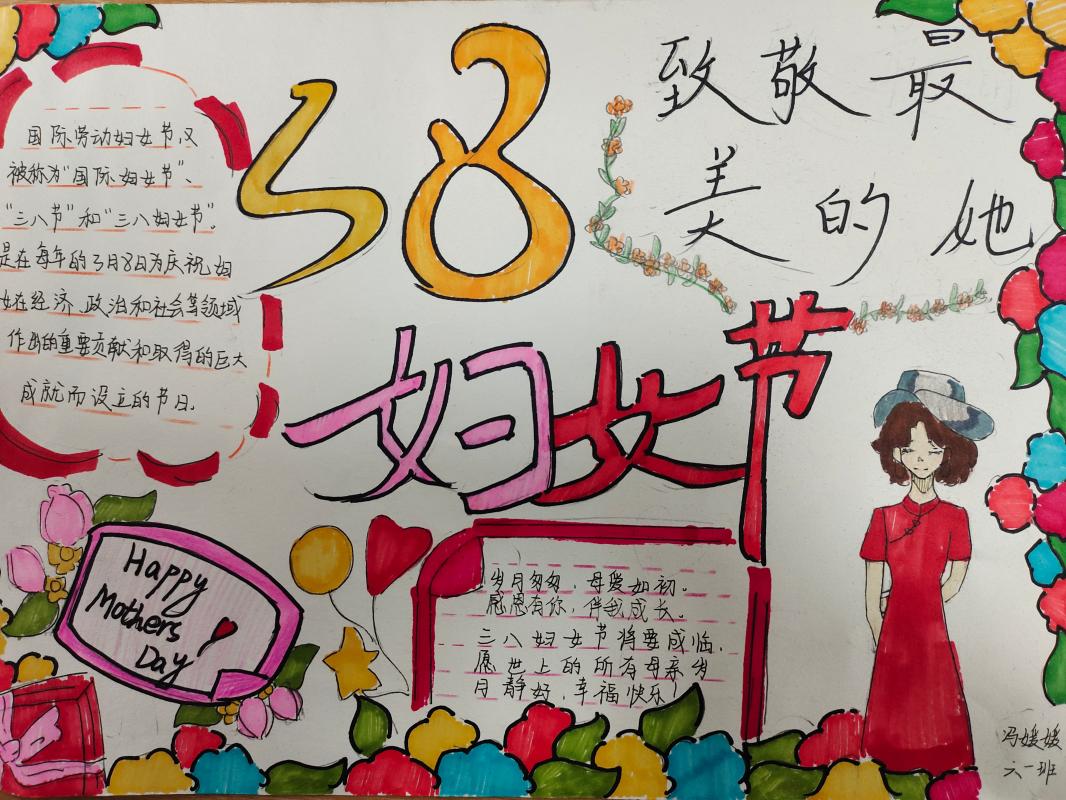 38
致敬最
美的她
妇女节
国际劳动妇女节,又
被称为"国际妇女节"、
"三八节"和"三八妇女节"。
是在每年的3月8日为庆祝妇
女在经济、政治和社会等领域
作出的重要贡献和取得的巨大
成就而设立的节日.
Happy
Mothers
Day!
岁月匆匆,母爱如初。
感恩有你,伴我成长。
三八妇女节将要成临,
愿世上的所有母亲岁
月静好,幸福快乐!
冯媛媛
六一班